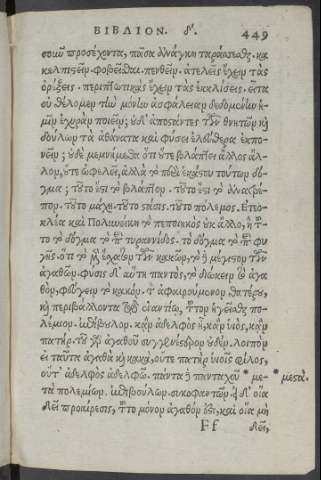 ΒΙΒΛΙΟΝ. δ'. 449
σεαυτῷ προσέχοντα, πᾶσα ἀνάγκη ταράσσεσθαι. κα
κελπιστεῖν. φοβεῖσθαι. πενθεῖν. ἀτελεῖς ἔχειν τὰς
ὀρέξεις. περιπτωτικὰς ἔχειν τὰς ἐκκλίσεις. εἶτα
οὐ θέλομεν τὴν μόνην ἀσφάλειαν δεδομένην ἡ-
μῖν ἐχυρὰν ποιεῖν; οὐδ' ἀποστάντες τῶν θνητῶν καὶ
δούλων τὰ ἀθάνατα καὶ φύσει ἐλεύθερα ἐκπο-
νεῖν; οὐδὲ μεμνήμεθα ὅτι οὔτε βλάπτει ἄλλος ἄλ-
λον, οὔτε ὠφελεῖ, ἀλλὰ τὸ περὶ ἑκάστου τούτων δό-
γμα; τοῦτό ἐστι τὸ βλάπτον. τοῦτό ἐστι τὸ ἀνατρέ-
πον. τοῦτο μάχη. τοῦτο στάσις. τοῦτο πόλεμος. Ετεο-
κλέα καὶ Πολυνείκη τὸ πεποιηκὸς οὐκ ἄλλο, ἢ τοῦ-
το τὸ δόγμα τὸ περὶ τυραννίδος. τὸ δόγμα τὸ περὶ φυ
γῆς· ὅτι τὸ μὲν ἔσχατον τῶν κακῶν, τὸ δὲ μέγιστον τῶν
ἀγαθῶν. φύσις δ' αὕτη παντὸς, τὸ διώκειν τὸ ἀγα-
θὸν, φεύγειν τὸ κακόν. τὸ ἀφαιρούμενον θατέρου,
καὶ περιβάλλοντα τῷ ἐναντίῳ, τοῦτον ἡγεῖσθαι πο-
λέμιον. ἐπίβουλον. κἂν ἀδελφὸς ᾖ, κἂν υἱὸς, κἂν
πατήρ. τοῦ γὰρ ἀγαθοῦ συγγενέστερον οὐδέν. λοιπὸν
εἰ ταῦτα ἀγαθὰ καὶ κακὰ, οὔτε πατὴρ υἱοῖς φίλος,
οὔτ' ἀδελφὸς ἀδελφῷ. πάντα δὲ πανταχοῦ * με- * μεστά.
τὰ πολεμίων. ἐπιβούλων. συκοφαντῶν. εἰ δ' οἵα
δεῖ προαίρεσις, τοῦτο μόνον ἀγαθόν ἐστι, καὶ οἵα μὴ
Ff δεῖ,